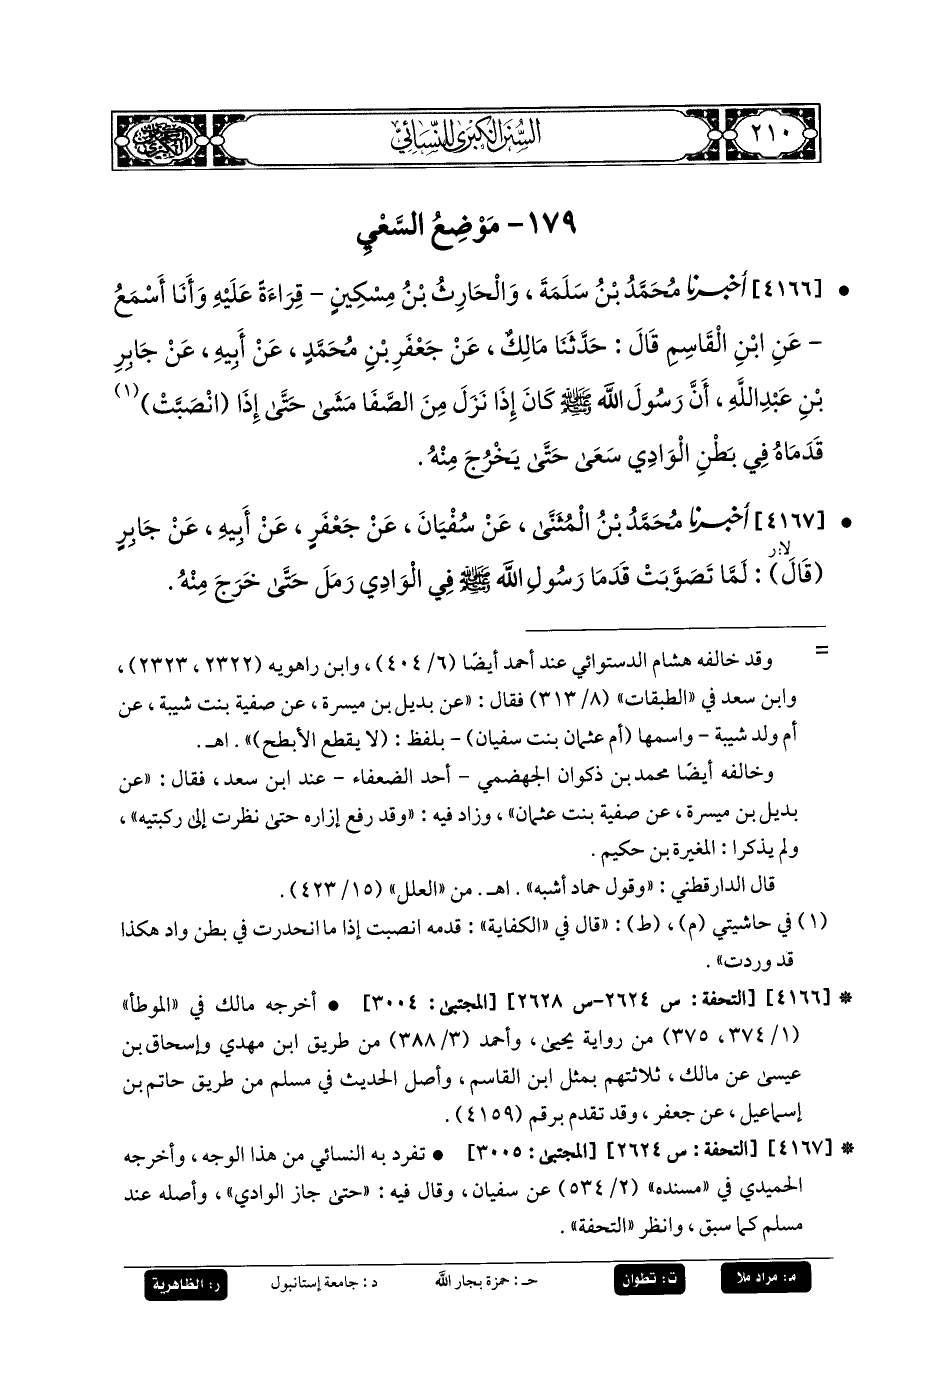 ٢١٠
السنن الكبرى للنسائي
١٧٩- مَوْضِعُ السَّعْيِ
• [٤١٦٦] أخبرنا مُحَمَّدُ بْنُ سَلَمَةَ ، وَالْحَارِثُ بْنُ مِسْكِينٍ - قِرَاءَةً عَلَيْهِ وَأَنَا أَسْمَعُ
- عَنِ ابْنِ الْقَاسِمِ قَالَ : حَدَّثَنَا مَالِكٌ ، عَنْ جَعْفَرِ بْنِ مُحَمَّدٍ ، عَنْ أَبِيهِ ، عَنْ جَابِرِ
بْنِ عَبْدِاللَّهِ ، أَنَّ رَسُولَ اللَّه ﷺ كَانَ إِذَا نَزَلَ مِنَ الصَّفَا مَشَىٰ حَتَّىٰ إِذَا (انْصَبَّتْ)(١)
قَدَمَاهُ فِي بَطْنِ الْوَادِي سَعَىٰ حَتَّىٰ يَخْرُجَ مِنْهُ .
• [٤١٦٧] أخبرنا مُحَمَّدُ بْنُ الْمُثَنَّىٰ ، عَنْ سُفْيَانَ ، عَنْ جَعْفَرٍ ، عَنْ أَبِيهِ ، عَنْ جَابِرٍ
لا: ر
(قَالَ) : لَمَّا تَصَوَّبَتْ قَدَمَا رَسُولِ اللَّه ﷺ فِي الْوَادِي رَمَلَ حَتَّىٰ خَرَجَ مِنْهُ .
= وقد خالفه هشام الدستوائي عند أحمد أيضًا (٦/ ٤٠٤) ، وابن راهويه (٢٣٢٢ ، ٢٣٢٣) ،
وابن سعد في «الطبقات» (٨/ ٣١٣) فقال : «عن بديل بن ميسرة ، عن صفية بنت شيبة ، عن
أم ولد شيبة - واسمها (أم عثمان بنت سفيان) - بلفظ : (لا يقطع الأبطح)» . اهـ .
وخالفه أيضًا محمد بن ذكوان الجهضمي - أحد الضعفاء - عند ابن سعد ، فقال : «عن
بديل بن ميسرة ، عن صفية بنت عثمان» ، وزاد فيه : «وقد رفع إزاره حتىٰ نظرت إلىٰ ركبتيه» ،
ولم يذكرا : المغيرة بن حكيم .
قال الدارقطني : «وقول حماد أشبه» . اهـ . من «العلل» (١٥/ ٤٢٣) .
(١) في حاشيتي (م) ، (ط) : «قال في «الكفاية» : قدمه انصبت إذا ما انحدرت في بطن واد هكذا
قد وردت» .
* [٤١٦٦] [التحفة : س ٢٦٢٤-س ٢٦٢٨] [المجتبىٰ : ٣٠٠٤] • أخرجه مالك في «الموطأ»
(١/ ٣٧٤ ، ٣٧٥) من رواية يحيىٰ ، وأحمد (٣/ ٣٨٨) من طريق ابن مهدي وإسحاق بن
عيسىٰ عن مالك ، ثلاثتهم بمثل ابن القاسم ، وأصل الحديث في مسلم من طريق حاتم بن
إسماعيل ، عن جعفر ، وقد تقدم برقم (٤١٥٩) .
* [٤١٦٧] [التحفة : س ٢٦٢٤] [المجتبىٰ : ٣٠٠٥] • تفرد به النسائي من هذا الوجه ، وأخرجه
الحميدي في «مسنده» (٢/ ٥٣٤) عن سفيان ، وقال فيه : «حتىٰ جاز الوادي» ، وأصله عند
مسلم كما سبق ، وانظر «التحفة» .
م: مراد ملا ت: تطوان حـ: حمزة بجار الله د: جامعة إستانبول ر: الظاهرية